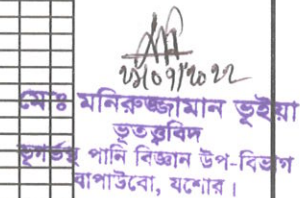 ২৬/০৭/২০২২
মোঃ মনিরুজ্জামান ভূইয়া
ভূতত্ত্ববিদ
ভূগর্ভস্থ পানি বিজ্ঞান উপ-বিভাগ
বাপাউবো, যশোর।